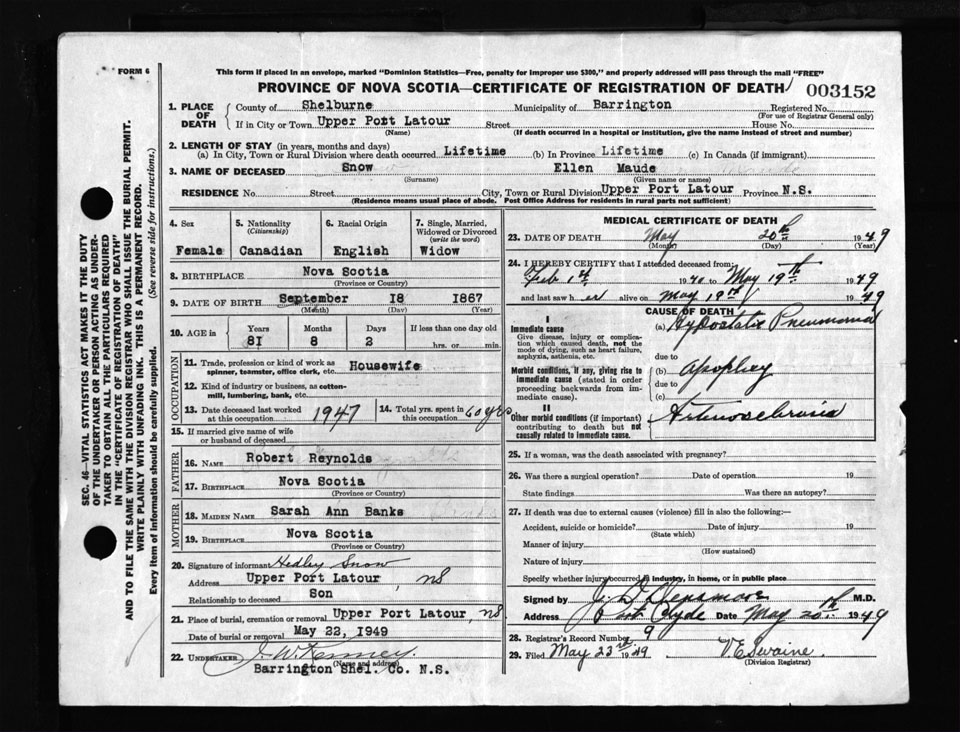 FORM 6
This form if placed in an envelope, marked "Dominion Statistics—Free, penalty for improper use $300," and properly addressed will pass through the mail "FREE"
PROVINCE OF NOVA SCOTIA—CERTIFICATE OF REGISTRATION OF DEATH
003152
SEC. 46—VITAL STATISTICS ACT MAKES IT THE DUTY
OF THE UNDERTAKER OR PERSON ACTING AS UNDER-
TAKER TO OBTAIN ALL THE PARTICULARS REQUIRED
IN THE "CERTIFICATE OF REGISTRATION OF DEATH"
AND TO FILE THE SAME WITH THE DIVISION REGISTRAR WHO SHALL ISSUE THE BURIAL PERMIT.
WRITE PLAINLY WITH UNFADING INK. THIS IS A PERMANENT RECORD.
Every item of information should be carefully supplied. (See reverse side for instructions.)
1. PLACE OF DEATH
County of Shelburne Municipality of Barrington Registered No.
(For use of Registrar General only)
If in City or Town Upper Port Latour Street House No.
(Name) (If death occurred in a hospital or institution, give the name instead of street and number)
2. LENGTH OF STAY (in years, months and days)
(a) In City, Town or Rural Division where death occurred Lifetime (b) In Province Lifetime (c) In Canada (if immigrant)
3. NAME OF DECEASED Snow Ellen Maude
(Surname) (Given name or names)
RESIDENCE No. Street City, Town or Rural Division Upper Port Latour Province N.S.
(Residence means usual place of abode. Post Office Address for residents in rural parts not sufficient)
4. Sex
Female
5. Nationality
(Citizenship)
Canadian
6. Racial Origin
English
7. Single, Married, Widowed or Divorced
(write the word)
Widow
8. BIRTHPLACE Nova Scotia
(Province or Country)
9. DATE OF BIRTH September 18 1867
(Month) (Day) (Year)
10. AGE in
Years Months Days If less than one day old
81 8 2 hrs. or min.
OCCUPATION
11. Trade, profession or kind of work as
spinner, teamster, office clerk, etc. Housewife
12. Kind of industry or business, as cotton-
mill, lumbering, bank, etc.
13. Date deceased last worked
at this occupation 1947
14. Total yrs. spent in
this occupation 60 yrs
15. If married give name of wife
or husband of deceased
FATHER
16. NAME Robert Reynolds
17. BIRTHPLACE Nova Scotia
(Province or Country)
MOTHER
18. MAIDEN NAME Sarah Ann Banks
19. BIRTHPLACE Nova Scotia
(Province or Country)
20. Signature of informant Hedley Snow
Address Upper Port Latour, NS
Relationship to deceased Son
21. Place of burial, cremation or removal Upper Port Latour, NS
Date of burial or removal May 22, 1949
22. UNDERTAKER J. W. Kenney
(Name and address)
Barrington Shel. Co. N.S.
MEDICAL CERTIFICATE OF DEATH
23. DATE OF DEATH May 20th 1949
(Month) (Day) (Year)
24. I HEREBY CERTIFY that I attended deceased from:
Feb 1st to May 19th 1949
and last saw her alive on May 19th 1949
CAUSE OF DEATH
I
Immediate cause
Give disease, injury or complica-
tion which caused death, not the
mode of dying, such as heart failure,
asphyxia, asthenia, etc.
(a) Hypostatic Pneumonia
due to
Morbid conditions, if any, giving rise to
immediate cause (stated in order
proceeding backwards from im-
mediate cause).
(b) Apoplexy
due to
(c)
II
Other morbid conditions (if important)
contributing to death but not
causally related to immediate cause.
25. If a woman, was the death associated with pregnancy?
26. Was there a surgical operation? Date of operation 19
State findings Was there an autopsy?
27. If death was due to external causes (violence) fill in also the following:—
Accident, suicide or homicide? Date of injury 19
(State which)
Manner of injury
(How sustained)
Nature of injury
Specify whether injury occurred in industry, in home, or in public place
Signed by J. D. Densmore M.D.
Address Port Clyde Date May 20th 1949
28. Registrar's Record Number 9
29. Filed May 23rd 1949 V E Swaine
(Division Registrar)